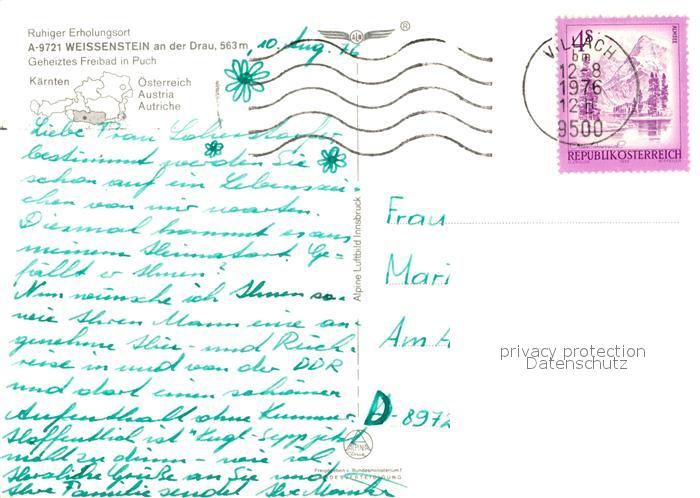 Ruhiger Erholungsort
A-9721 WEISSENSTEIN an der Drau, 563 m
Geheiztes Freibad in Puch
Kärnten
Österreich
Austria
Autriche
®
10. Aug. 76
4S
VILLACH
12-8
1976
9500
REPUBLIK ÖSTERREICH
Liebe Frau
bestimmt werden Sie
schon auf ein Lebenszei-
chen von mir warten.
Diesmal kommt es aus
meinem Heimatort. Ge-
fällt er Ihnen?
Nun wünsche ich Ihnen so-
wie Ihrem Mann eine an-
genehme Hin- und Rück-
reise in und von der DDR
und dort einen schönen
Aufenthalt ohne Kummer.
Hoffentlich ist "Kugl-Sepp" jetzt
nicht zu dünn - wie ich
Herzliche Grüße an Sie und
Ihre Familie sendet Ihre
Alpine Luftbild Innsbruck
Frau
Mari
Am A
D-8972
privacy protection
Datenschutz
ALPINE
Freigegeben v. Bundesministerium f.
LANDESVERTEIDIGUNG